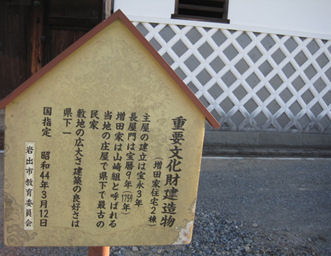 重要文化財建造物
(増田家住宅2棟)
主屋の建立は宝永3年
長屋門は宝暦9年(1759年)
増田家は山崎組と呼ばれる
当地の庄屋で県下で最古の
民家
敷地の広大さ建築の良好さは
県下一
国指定 昭和44年3月12日
岩出市教育委員会